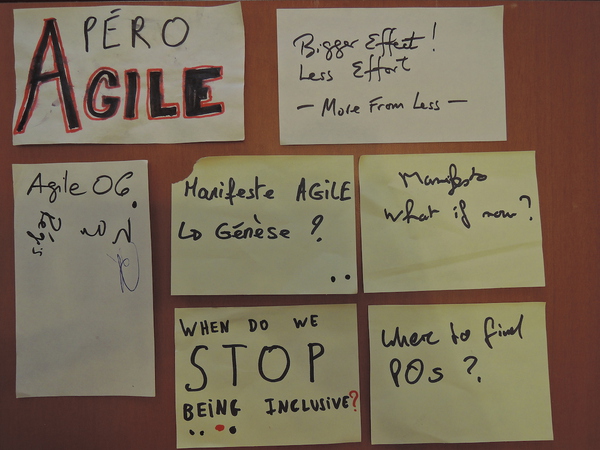 APÉRO
AGILE
Bigger Effect!
Less Effort
— More From Less —
Agile 06.
Régis
Manifeste AGILE
La Génèse ?
Manifesto
What if now?
WHEN DO WE
STOP
BEING INCLUSIVE?
Where to find
POs ?